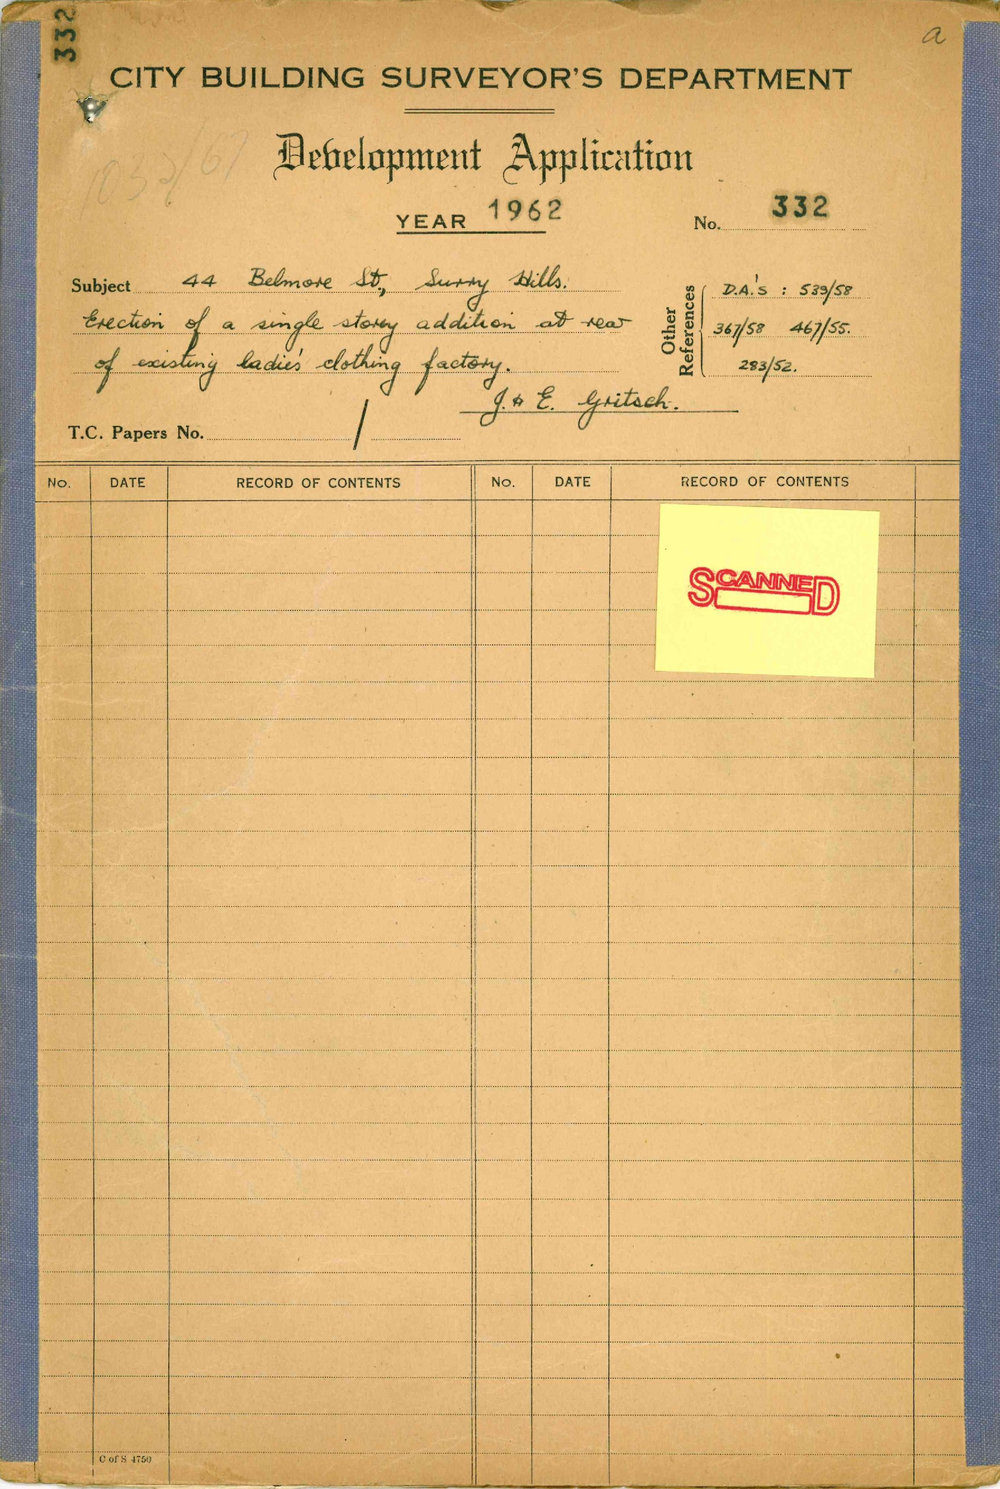 332
a
CITY BUILDING SURVEYOR'S DEPARTMENT
1032/67
Development Application
YEAR 1962
No. 332
Subject 44 Belmore St., Surry Hills.
Erection of a single storey addition at rear
of existing ladie's clothing factory.
J. & E. Gritsch.
Other References
D.A.'s : 539/58
367/58 467/55.
283/52.
T.C. Papers No. /
No. DATE RECORD OF CONTENTS No. DATE RECORD OF CONTENTS
SCANNED
C of S 4750